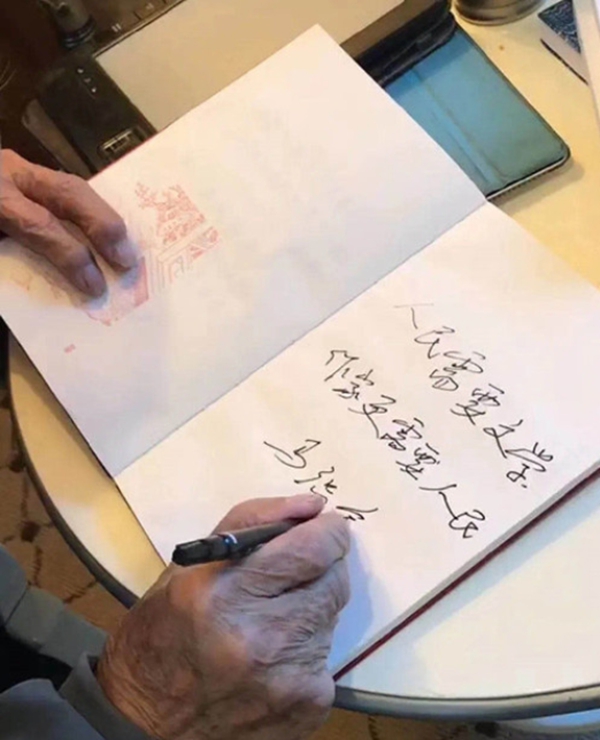 人民需要文学
作家更需要人民
马识